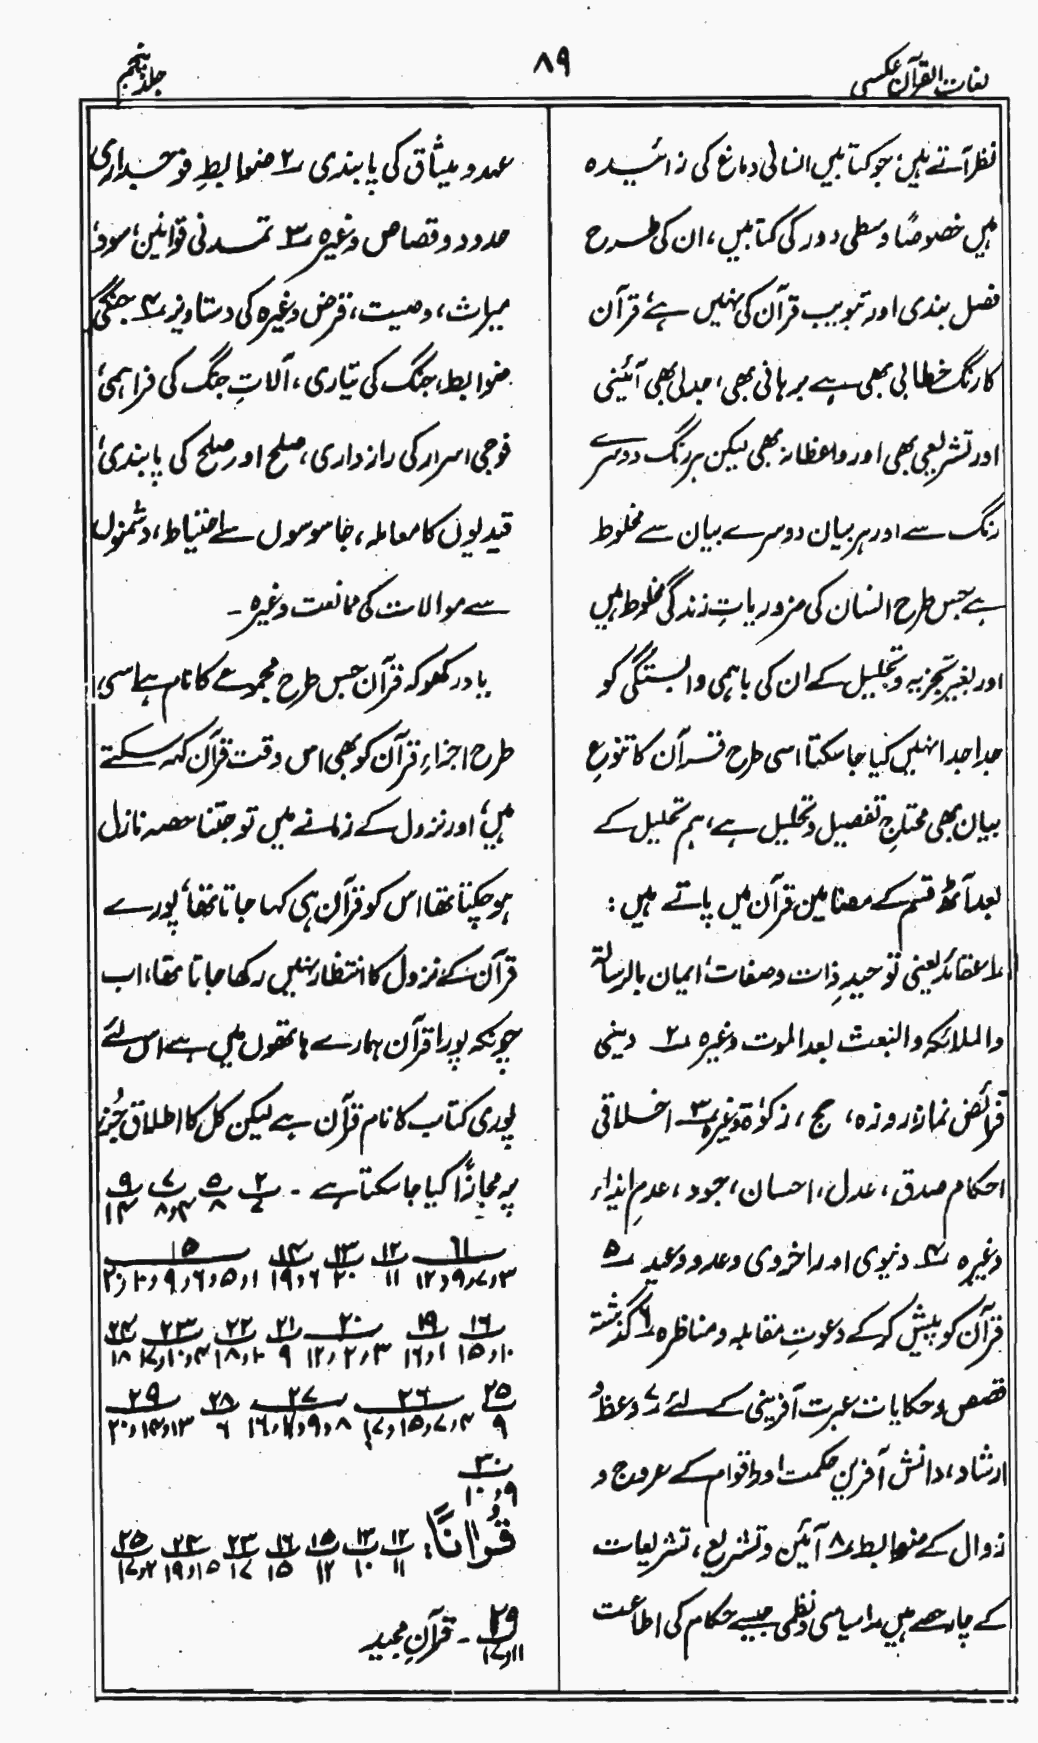 لغات القرآن عکسی
۸۹
جلد پنجم
نظر آتے ہیں؛ جو کتابیں انسانی دماغ کی زائیدہ
ہیں خصوصًا وسطی دور کی کتابیں، ان کی طرح
فصل بندی اور تبویب قرآن کی نہیں ہے، قرآن
کا رنگ خطابی بھی ہے برہانی بھی، جدلی بھی آئینی
اور تشریعی بھی اور واعظانہ بھی لیکن ہر رنگ دوسرے
رنگ سے اور ہر بیان دوسرے بیان سے مخلوط
ہے جس طرح انسان کی ضروریاتِ زندگی مخلوط ہیں
اور بغیر تجزیہ و تحلیل کے ان کی باہمی وابستگی کو
جدا جدا نہیں کیا جا سکتا اسی طرح قرآن کا تنوعِ
بیان بھی محتاجِ تفصیل و تحلیل ہے، ہم تحلیل کے
بعد آٹھ قسم کے مضامین قرآن میں پاتے ہیں:
۱ عقائد یعنی توحیدِ ذات و صفات، ایمان بالرسالۃ
والملائکہ والبعث بعد الموت وغیرہ ۲ دینی
فرائض نماز، روزہ، حج، زکوٰۃ وغیرہ ۳ اخلاقی
احکام صدق، عدل، احسان، جود، عدمِ ایذاء
وغیرہ ۴ دنیوی اور اخروی وعد و وعید ۵
قرآن کو پیش کر کے دعوتِ مقابلہ و مناظرہ ۶ گذشتہ
قصص و حکایات عبرت آفرینی کے لئے ۷ وعظ و
ارشاد، دانش آفرین حکمت اور اقوام کے عروج و
زوال کے ضوابط ۸ آئین و تشریع، تشریعات
کے چار حصے ہیں ۱ سیاسی و نظمی جیسے حکام کی اطاعت
عہد و میثاق کی پابندی ۲ ضوابطِ فوجداری
حدود و قصاص وغیرہ ۳ تمدنی قوانین، سود،
میراث، وصیت، قرض وغیرہ کی دستاویز ۴ جنگی
ضوابط، جنگ کی تیاری، آلاتِ جنگ کی فراہمی،
فوجی اسرار کی رازداری، صلح اور صلح کی پابندی،
قیدیوں کا معاملہ، جاسوسوں سے احتیاط، دشمنوں
سے موالات کی ممانعت وغیرہ۔
یاد رکھو کہ قرآن جس طرح مجموعے کا نام ہے اسی
طرح اجزاءِ قرآن کو بھی اس وقت قرآن کہہ سکتے
ہیں، اور نزول کے زمانے میں تو جتنا حصہ نازل
ہو چکتا تھا اس کو قرآن ہی کہا جاتا تھا، پورے
قرآن کے نزول کا انتظار نہیں رکھا جاتا تھا، اب
چونکہ پورا قرآن ہمارے ہاتھوں میں ہے اس لئے
پوری کتاب کا نام قرآن ہے لیکن کل کا اطلاق جُز
پر مجازًا کیا جا سکتا ہے۔ ۲/۷ ۵/۸ ۷/۸،۱۴ ۹/۱۴
۱۱/۳،۷،۹،۱۲ ۱۲/۱۱ ۱۳/۲۰ ۱۴/۶،۱۹ ۱۵/۱،۵،۶،۹،۱۰،۲۰
۱۶/۱۰،۱۵ ۱۹/۱،۱۶ ۲۰/۳،۲،۱۲ ۲۱/۹ ۲۲/۱۰،۱۸ ۲۳/۴،۱۰،۱۷ ۲۴/۱۸
۲۵/۹ ۲۶/۴،۷،۱۵،۱۷ ۲۷/۸،۹،۱۲،۱۶ ۲۸/۶ ۲۹/۱۳،۱۴،۲۰
۳۰/۹،۱۰
قُرْاٰنًا: ۱۲/۱۱ ۱۳/۱۰ ۱۵/۱۲ ۱۶/۱۵ ۲۳/۱۷ ۲۴/۱۵،۱۹ ۲۵/۲،۱۷
۲۹/۱۱،۱۷ ۔ قرآنِ مجید